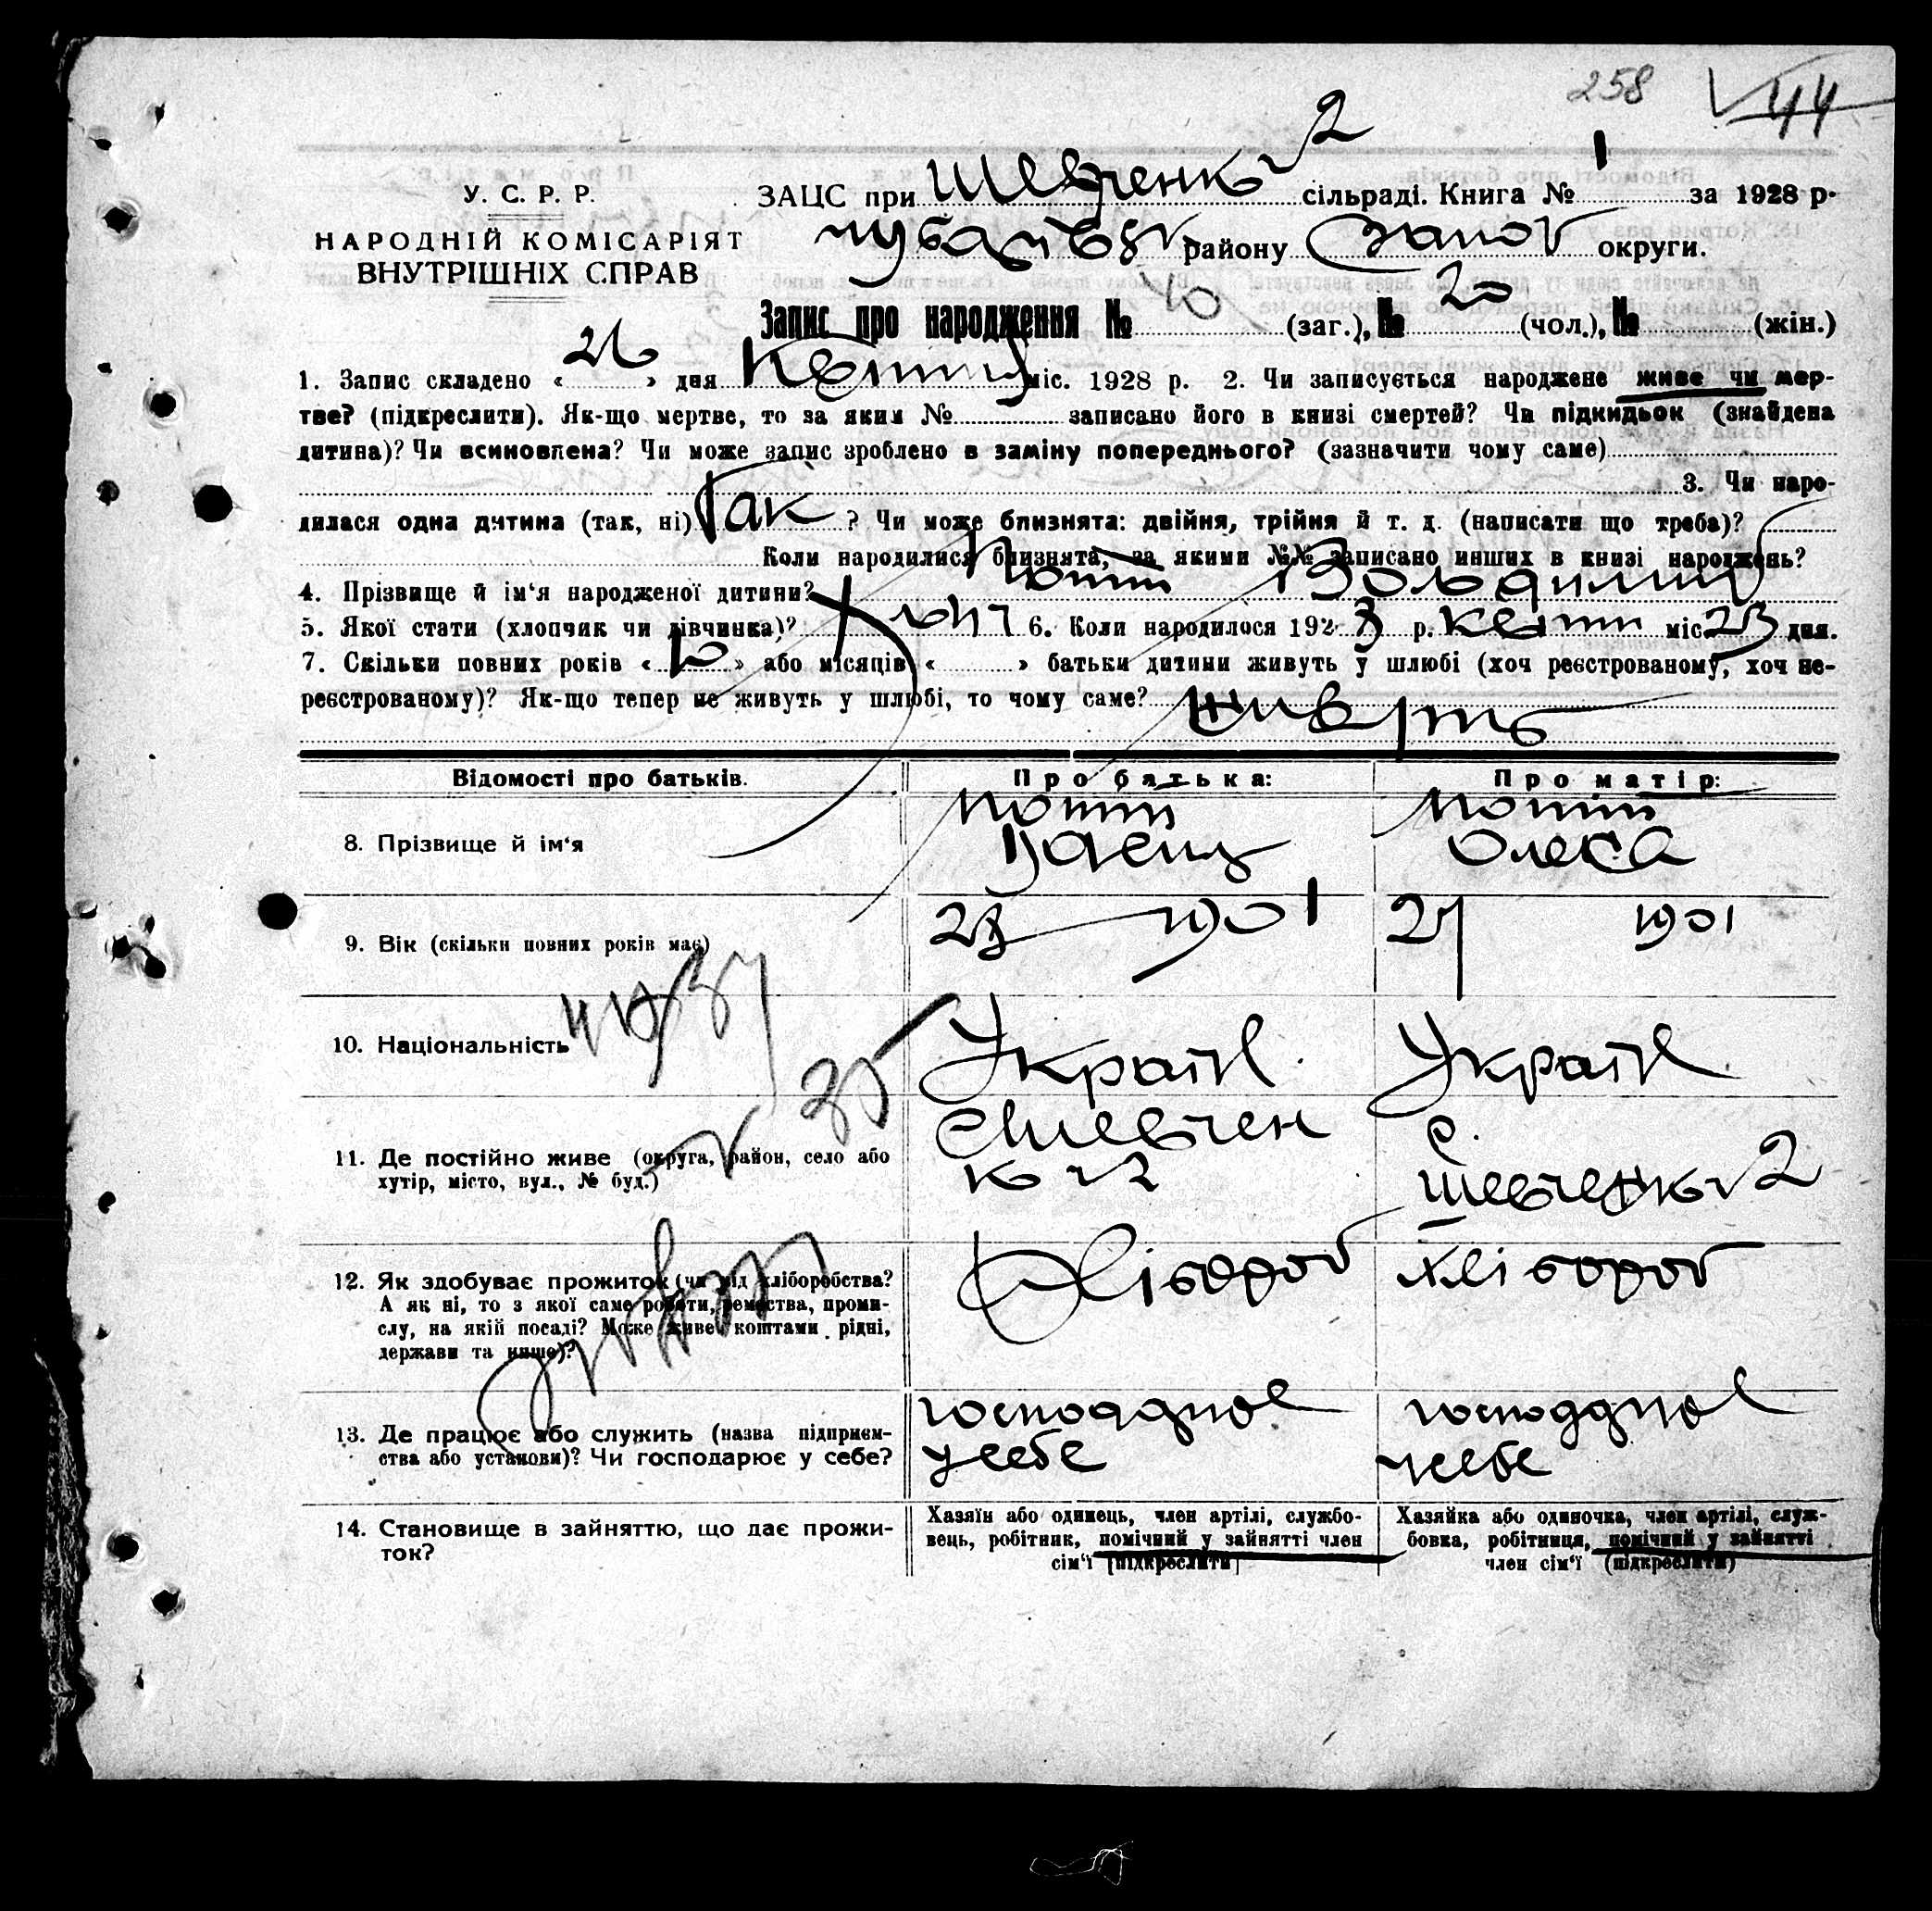 258 44
У. С. Р. Р.
НАРОДНІЙ КОМІСАРІЯТ
ВНУТРІШНІХ СПРАВ
ЗАЦС при Шевченків 2 сільраді. Книга № 1 за 1928 р.
району Запоў округи.
Запис про народження № 40 (заг.), № 20 (чол.), № (жін.)
1. Запис складено « 26 » дня Квітня міс. 1928 р. 2. Чи записується народжене живе чи мер-
тве? (підкреслити). Як-що мертве, то за яким № записано його в книзі смертей? Чи підкидьок (знайдена
дитина)? Чи всиновлена? Чи може запис зроблено в заміну попереднього? (зазначити чому саме)
3. Чи наро-
дилася одна дитина (так, ні) Так ? Чи може близнята: двійня, трійня й т. д. (написати що треба)?
Коли народилися близнята, за якими №№ записано инших в книзі народжень?
4. Прізвище й ім'я народженої дитини?
5. Якої стати (хлопчик чи дівчинка)? Хлопч 6. Коли народилося 1928 р. Квітн міс 23 дня.
7. Скільки повних років « » або місяців « » батьки дитини живуть у шлюбі (хоч реєстрованому, хоч не-
реєстрованому)? Як-що тепер не живуть у шлюбі, то чому саме? живуть
Відомості про батьків. Про батька: Про матір:
8. Прізвище й ім'я
Олекса
9. Вік (скільки повних років має) 1901 27 1901
10. Національність Україн Україн
11. Де постійно живе (округа, район, село або
хутір, місто, вул., № буд.)
с Шевчен
ків 2
с.
Шевченків 2
12. Як здобуває прожиток (чи від хліборобства?
А як ні, то з якої саме роботи, ремества, проми-
слу, на якій посаді? Може живе коштами рідні,
держави та инше)?
Хлібороб Хлібороб
13. Де працює або служить (назва підприєм-
ства або установи)? Чи господарює у себе?
у себе
у себе
14. Становище в зайняттю, що дає прожи-
ток?
Хазяїн або одинець, член артілі, службо-
вець, робітник, помічний у зайнятті член
сім'ї (підкреслити)
Хазяйка або одиночка, член артілі, служ-
бовка, робітниця, помічний у зайнятті
член сім'ї (підкреслити)